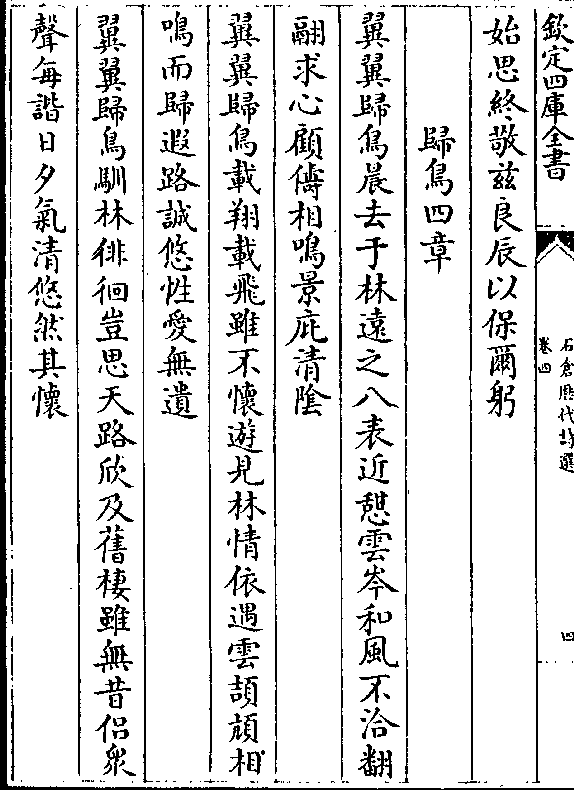 欽定四庫全書
石倉歴代詩選
卷四
四
始思終敬兹良辰以保爾躬
歸鳥四章
翼翼歸鳥晨去于林遠之八表近憇雲岑和風不洽翻
翮求心顧儔相鳴景庇清陰
翼翼歸鳥載翔載飛雖不懷遊見林情依遇雲頡頏相
鳴而歸遐路誠悠性愛無遺
翼翼歸鳥馴林徘徊豈思天路欣及舊棲雖無昔侣衆
聲每諧日夕氣清悠然其懷